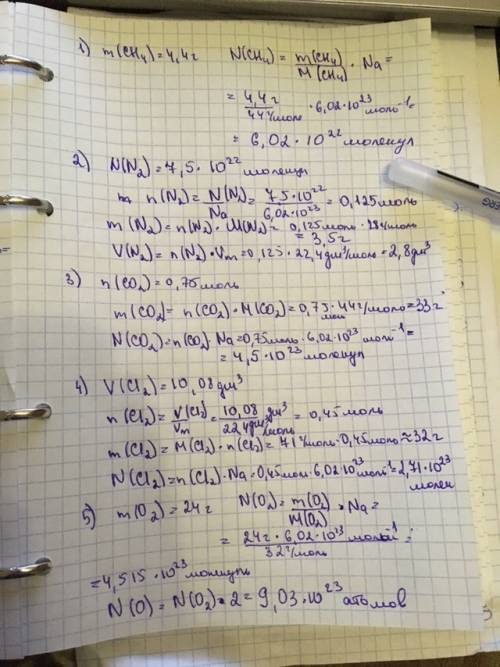 1) m(CH₄)=4,4г N(CH₄) = m(CH₄)/M(CH₄) · Na =
= 4,4г/44г/моль · 6,02·10²³ моль⁻¹=
= 6,02·10²² молекул
2) N(N₂)=7,5·10²² молекул
n(N₂)= N(N₂)/Na = 7,5·10²²/6,02·10²³ = 0,125моль
m(N₂)=n(N₂)·M(N₂)= 0,125моль·28г/моль
= 3,5г
V(N₂)= n(N₂)·Vm=0,125·22,4дм³/моль=2,8дм³
3) n(CO₂)=0,75моль
m(CO₂)= n(CO₂)·M(CO₂)=0,75моль·44г/моль=33г
N(CO₂)=n(CO₂)·Na=0,75моль·6,02·10²³ моль⁻¹=
= 4,5·10²³ молекул
4) V(Cl₂)=10,08дм³
n(Cl₂)= V(Cl₂)/Vm = 10,08 дм³/22,4дм³/моль = 0,45моль
m(Cl₂)= M(Cl₂)·n(Cl₂)= 71г/моль·0,45моль≈32г
N(Cl₂)=n(Cl₂)·Na=0,45моль·6,02·10²³моль⁻¹=2,71·10²³
молек
5) m(O₂)=24г N(O₂)= m(O₂)/M(O₂) · Na=
= 24г·6,02·10²³ моль⁻¹/32г/моль =
=4,515·10²³ молекул
N(O)= N(O₂)·2 = 9,03·10²³ атомов